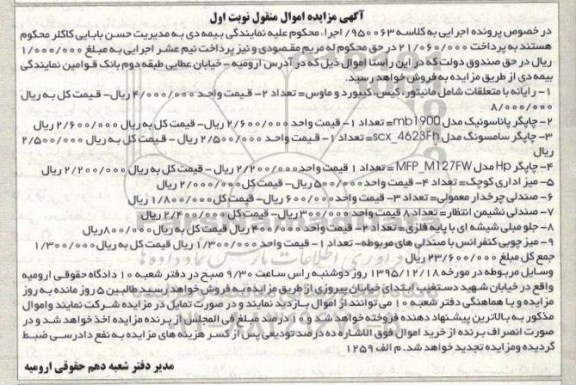 آگهی مزایده اموال منقول نوبت اول
در خصوص پرونده اجرایی به کلاسه ۹۵۰۰۶۳/ اجرا، محکوم علیه نمایندگی بیمه دی به مدیریت حسن بابایی کاکلر محکوم
هستند به پرداخت ۲۱/۰۶۰/۰۰۰ در حق محکوم له مریم مقصودی و نیز پرداخت نیم عشر اجرایی به مبلغ ۱/۰۰۰/۰۰۰
ریال در حق صندوق دولت که در این راستا اموال ذیل که در آدرس ارومیه - خیابان عطایی طبقه دوم بانک قوامین نمایندگی
بیمه دی از طریق مزایده به فروش خواهد رسید.
۱- رایانه با متعلقات شامل مانیتور، کیس، کیبورد و ماوس= تعداد ۲- قیمت واحد ۴/۰۰۰/۰۰۰ ریال- قیمت کل به ریال
۸/۰۰۰/۰۰۰
۲- چاپگر پاناسونیک مدل mb1900= تعداد ۱- قیمت واحد ۲/۶۰۰/۰۰۰ ریال- قیمت کل به ریال ۲/۶۰۰/۰۰۰ ریال
۳- چاپگر سامسونگ مدل scx_4623Fh= تعداد ۱- قیمت واحد ۲/۵۰۰/۰۰۰ ریال- قیمت کل به ریال ۲/۵۰۰/۰۰۰
ریال
۴- چاپگر Hp مدل MFP_M127FW= تعداد ۱ قیمت واحد ۲/۲۰۰/۰۰۰ ریال- قیمت کل به ریال ۲/۲۰۰/۰۰۰ ریال
۵- میز اداری کوچک= تعداد ۴- قیمت واحد ۵۰۰/۰۰۰ ریال- قیمت کل ۲/۰۰۰/۰۰۰ ریال
۶- صندلی چرخدار معمولی= تعداد ۳- قیمت واحد ۶۰۰/۰۰۰ ریال- قیمت کل ۱/۸۰۰/۰۰۰ ریال
۷- صندلی نشیمن انتظار= تعداد ۸ قیمت واحد ۳۰۰/۰۰۰ ریال- قیمت کل به ریال ۲/۴۰۰/۰۰۰ ریال
۸- جلو مبلی شیشه ای با پایه فلزی= تعداد ۲- قیمت واحد ۴۰۰/۰۰۰ ریال قیمت کل به ریال ۸۰۰/۰۰۰ ریال
۹- میز چوبی کنفرانس با صندلی های مربوطه- تعداد ۱- قیمت واحد ۱/۳۰۰/۰۰۰ ریال قیمت کل به ریال ۱/۳۰۰/۰۰۰
جمع کل مبلغ ۲۳/۶۰۰/۰۰۰ ریال
وسایل مربوطه در مورخه ۱۳۹۵/۱۲/۱۸ روز دوشنبه راس ساعت ۹/۳۰ صبح در دفتر شعبه ۱۰ دادگاه حقوقی ارومیه
واقع در خیابان شهید دستغیب ابتدای خیابان پیروزی از طریق مزایده به فروش خواهد رسید طالبین ۵ روز مانده به روز
مزایده و با هماهنگی دفتر شعبه ۱۰ می توانند از اموال بازدید نمایند و در صورت تمایل در مزایده شرکت نمایند و اموال
مذکور به بالاترین پیشنهاد دهنده فروخته خواهد شد و ۱۰ درصد مبلغ فی المجلس از برنده مزایده اخذ خواهد شد و در
صورت انصراف برنده از خرید اموال فوق الاشاره ده درصد تودیعی پس از کسر هزینه های مزایده به نفع دادرسی ضبط
گردیده و مزایده تجدید خواهد شد. م الف ۱۲۵۹
مدیر دفتر شعبه دهم حقوقی ارومیه